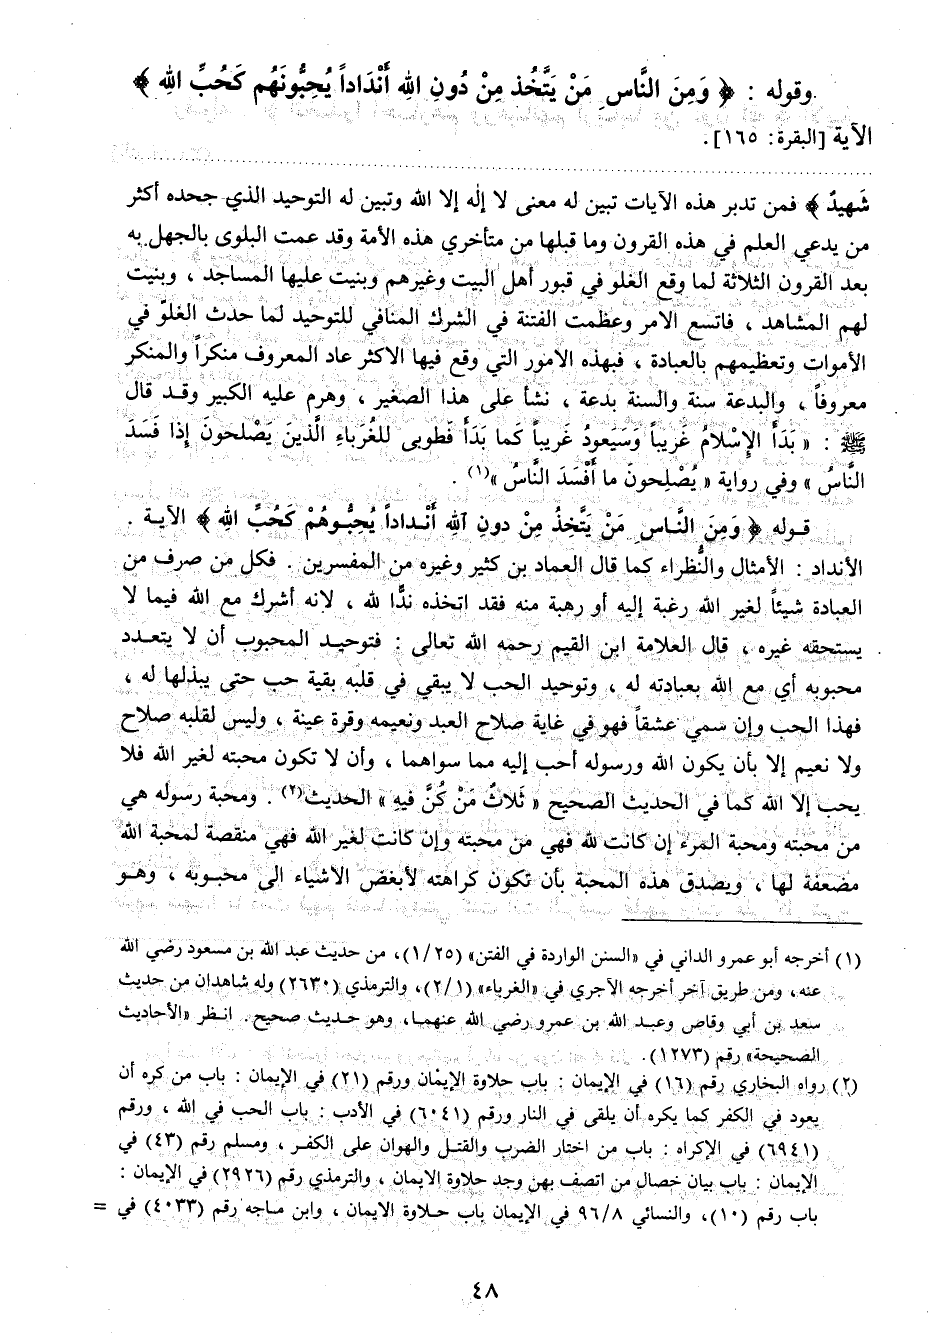 وقوله : ﴿ وَمِنَ النَّاسِ مَنْ يَتَّخُذ مِنْ دُونِ اللهِ أَنْدَاداً يُحِبُّونَهُم كَحُبِّ الله ﴾
الآية [البقرة: ١٦٥].
شَهِيدٌ ﴾ فمن تدبر هذه الآيات تبين له معنى لا إله إلا الله وتبين له التوحيد الذي جحده أكثر
من يدعي العلم في هذه القرون وما قبلها من متأخري هذه الأمة وقد عمت البلوى بالجهل به
بعد القرون الثلاثة لما وقع الغلو في قبور أهل البيت وغيرهم وبنيت عليها المساجد ، وبنيت
لهم المشاهد ، فاتسع الامر وعظمت الفتنة في الشرك المنافي للتوحيد لما حدث الغلوّ في
الأموات وتعظيمهم بالعبادة ، فبهذه الامور التي وقع فيها الاكثر عاد المعروف منكراً والمنكر
معروفاً ، والبدعة سنة والسنة بدعة ، نشأ على هذا الصغير ، وهرم عليه الكبير وقد قال
ﷺ : « بَدَأَ الإِسْلامُ غَرِيباً وَسَيَعودُ غَرِيباً كَما بَدَأَ فَطوبى للغُرَباءِ الَّذينَ يَصْلحونَ إذَا فَسَدَ
النَّاسُ » وفي رواية « يُصْلِحونَ ما أَفْسَدَ النَّاسُ »(١) .
قوله ﴿ وَمِنَ النَّاسِ مَنْ يَتَّخِذُ مِنْ دونِ اللهِ أَنْداداً يُحِبُّوهُمْ كَحُبِّ اللهِ ﴾ الآية .
الأنداد : الأمثال والنُّظراء كما قال العماد بن كثير وغيره من المفسرين . فكل من صرف من
العبادة شيئاً لغير الله رغبة إليه أو رهبة منه فقد اتخذه ندًّا لله ، لانه أشرك مع الله فيما لا
يستحقه غيره ، قال العلامة ابن القيم رحمه الله تعالى : فتوحيد المحبوب أن لا يتعدد
محبوبه أي مع الله بعبادته له ، وتوحيد الحب لا يبقي في قلبه بقية حب حتى يبذلها له ،
فهذا الحب وإن سمي عشقاً فهو في غاية صلاح العبد ونعيمه وقرة عينة ، وليس لقلبه صلاح
ولا نعيم إلا بأن يكون الله ورسوله أحب إليه مما سواهما ، وأن لا تكون محبته لغير الله فلا
يحب إلا الله كما في الحديث الصحيح « ثَلاثٌ مَنْ كُنَّ فيهِ » الحديث(٢) . ومحبة رسوله هي
من محبته ومحبة المرء إن كانت لله فهي من محبته وإن كانت لغير الله فهي منقصة لمحبة الله
مضعفة لها ، ويصدق هذه المحبة بأن تكون كراهته لأبغض الاشياء الى محبوبه ، وهو
(١) أخرجه أبو عمرو الداني في «السنن الواردة في الفتن» (١/٢٥)، من حديث عبد الله بن مسعود رضي الله
عنه، ومن طريق آخر أخرجه الآجري في «الغرباء» (٢/١)، والترمذي (٢٦٣٠) وله شاهدان من حديث
سعد بن أبي وقاص وعبد الله بن عمرو رضي الله عنهما، وهو حديث صحيح. انظر «الأحاديث
الصحيحة» رقم (١٢٧٣).
(٢) رواه البخاري رقم (١٦) في الإيمان : باب حلاوة الإيمان ورقم (٢١) في الإيمان : باب من كره أن
يعود في الكفر كما يكره أن يلقى في النار ورقم (٦٠٤١) في الأدب : باب الحب في الله ، ورقم
(٦٩٤١) في الإكراه : باب من اختار الضرب والقتل والهوان على الكفر ، ومسلم رقم (٤٣) في
الإيمان : باب بيان خصال من اتصف بهن وجد حلاوة الايمان ، والترمذي رقم (٢٩٢٦) في الإيمان :
باب رقم (١٠)، والنسائي ٩٦/٨ في الإيمان باب حلاوة الايمان ، وابن ماجه رقم (٤٠٣٣) في =
٤٨